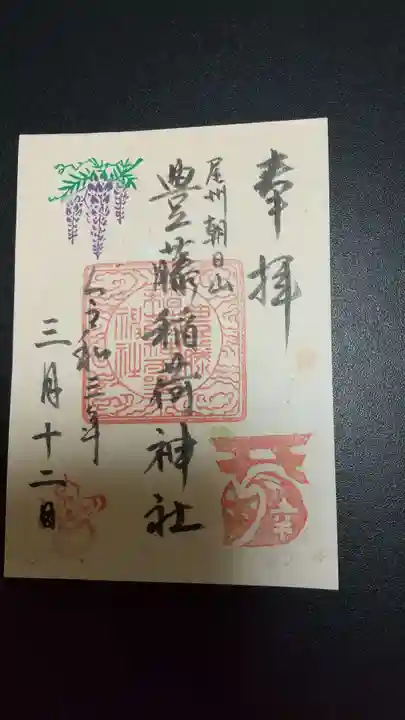 奉拝
尾州朝日山
豊藤稲荷神社
令和三年
三月十二日